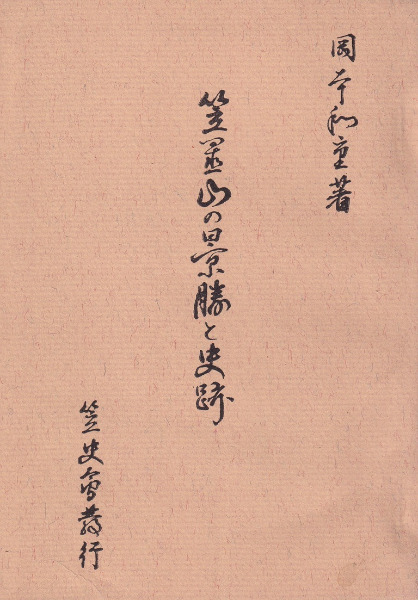 岡本和重著
笠置山の景勝と史跡
笠史會発行